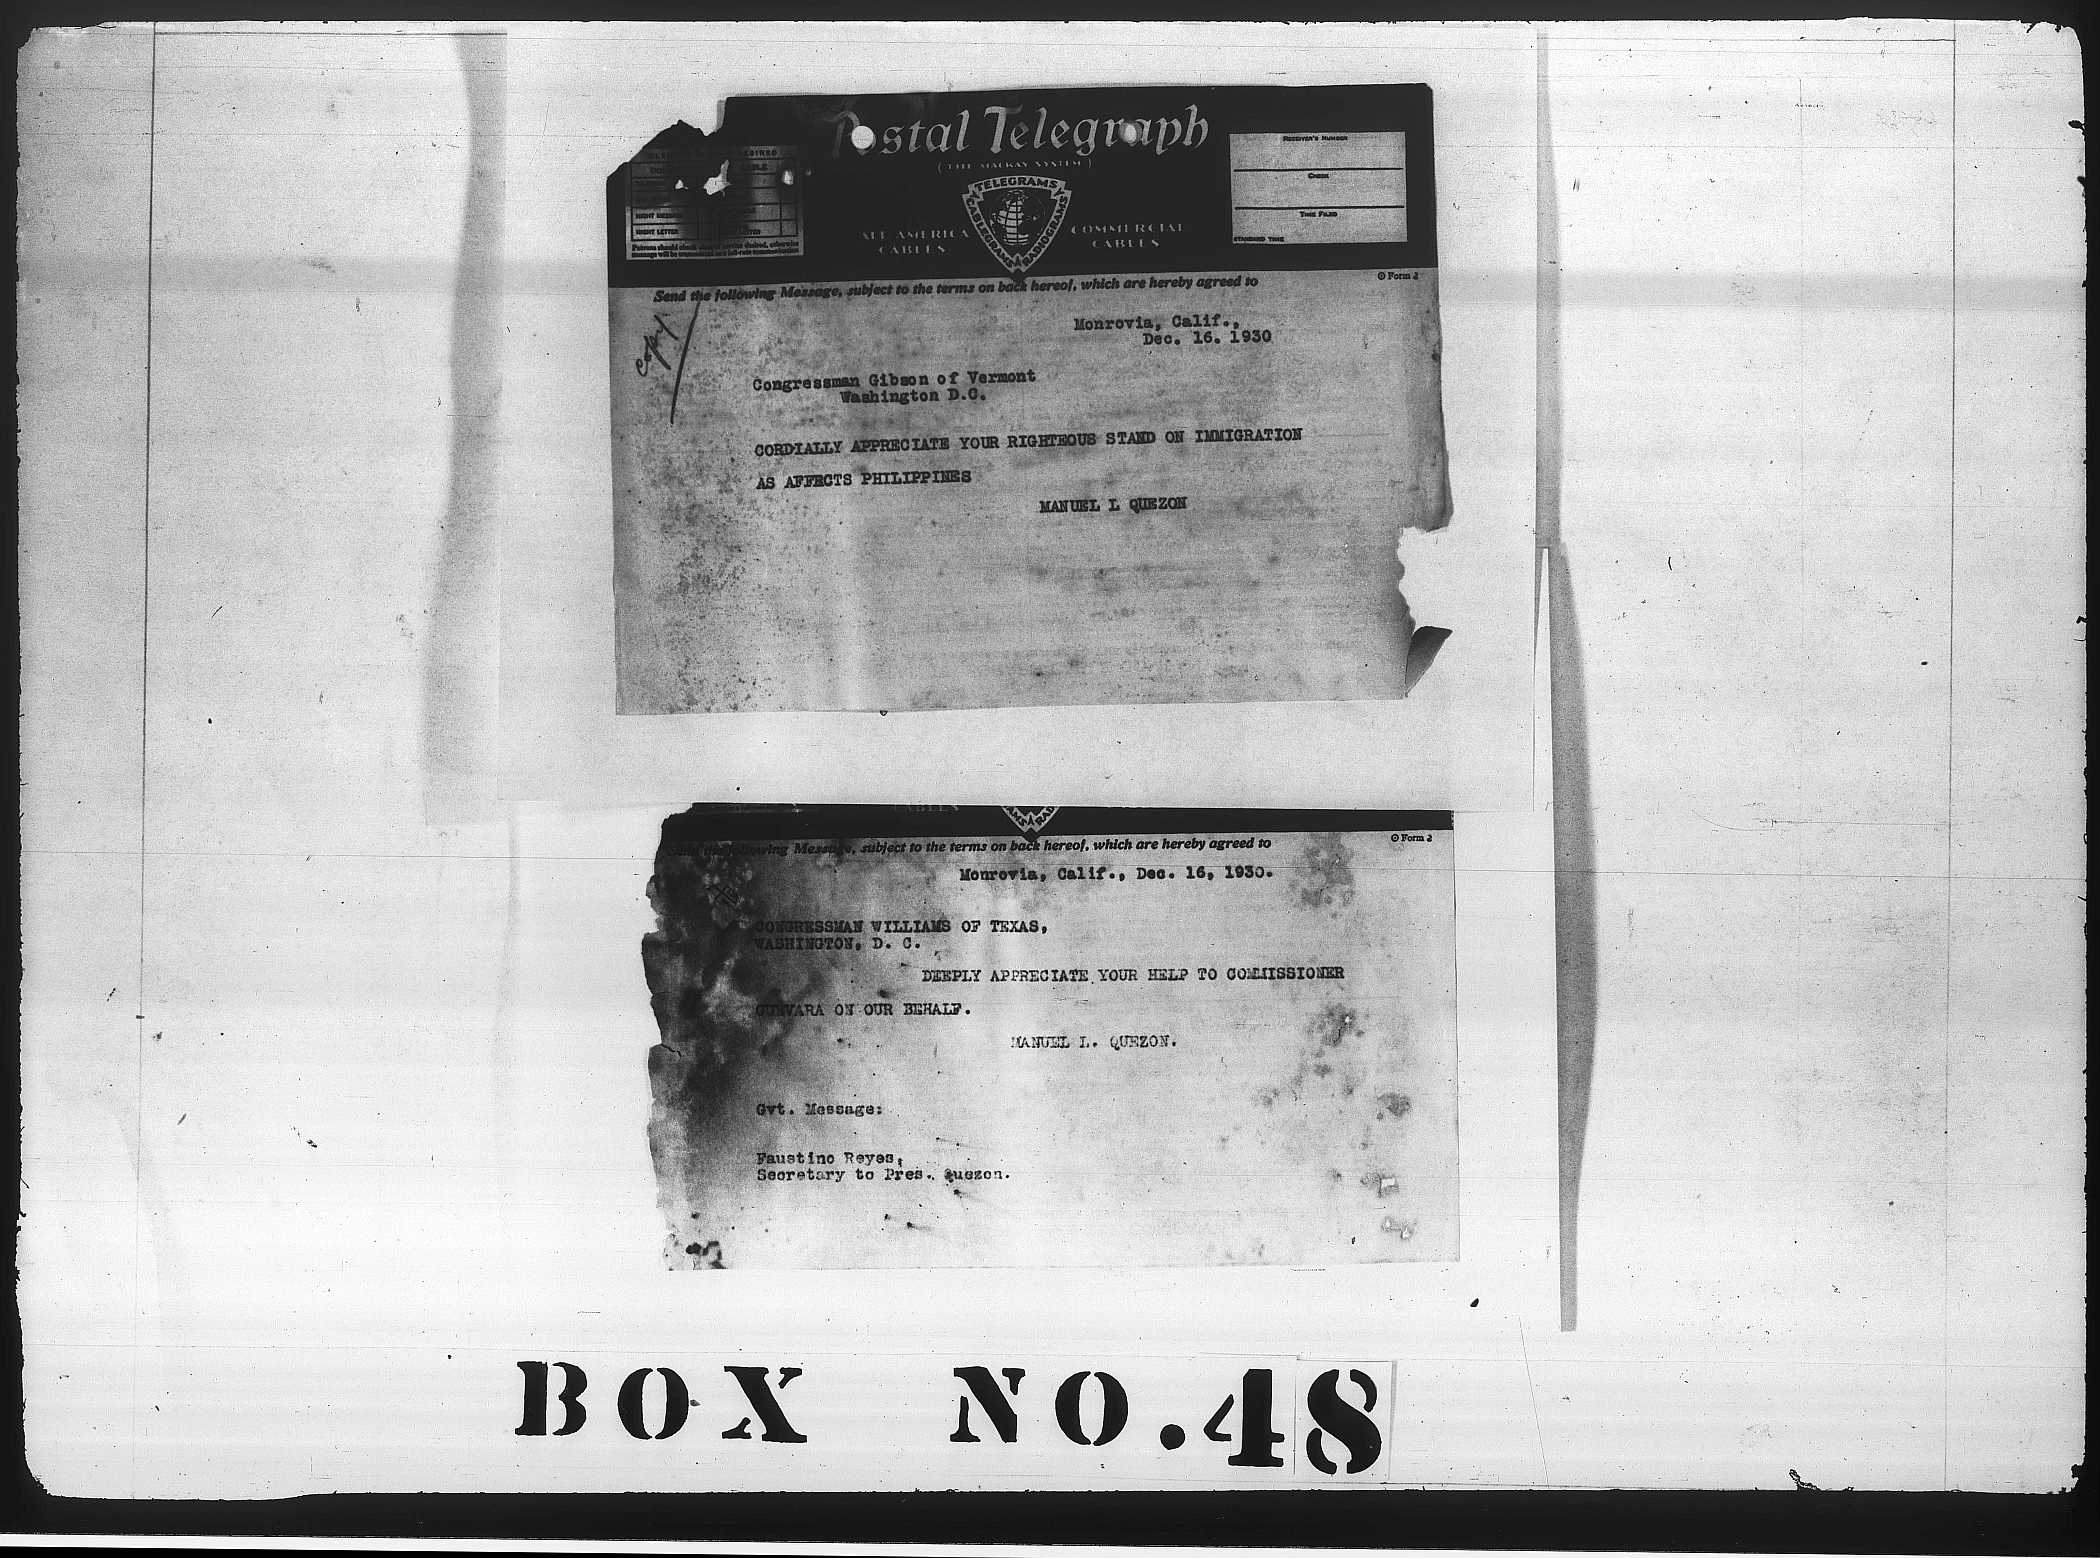 Postal Telegraph
(THE MACKAY SYSTEM)
TELEGRAMS
CABLEGRAMS
RADIOGRAMS
ALL AMERICA
CABLES
COMMERCIAL
CABLES
RECEIVER'S NUMBER
CHECK
TIME FILED
STANDARD TIME
NIGHT LETTER
Patrons should check class of service desired, otherwise
message will be transmitted as a full-rate communication
Form 2
Send the following Message, subject to the terms on back hereof, which are hereby agreed to
copy
Monrovia, Calif.,
Dec. 16. 1930
Congressman Gibson of Vermont
Washington D.C.
CORDIALLY APPRECIATE YOUR RIGHTEOUS STAND ON IMMIGRATION
AS AFFECTS PHILIPPINES
MANUEL L QUEZON
CABLES
Form 2
Send the following Message, subject to the terms on back hereof, which are hereby agreed to
Monrovia, Calif., Dec. 16, 1930.
CONGRESSMAN WILLIAMS OF TEXAS,
WASHINGTON, D. C.
DEEPLY APPRECIATE YOUR HELP TO COMMISSIONER
GUEVARA ON OUR BEHALF.
MANUEL L. QUEZON.
Gvt. Message:
Faustino Reyes,
Secretary to Pres. Quezon.
BOX NO. 48